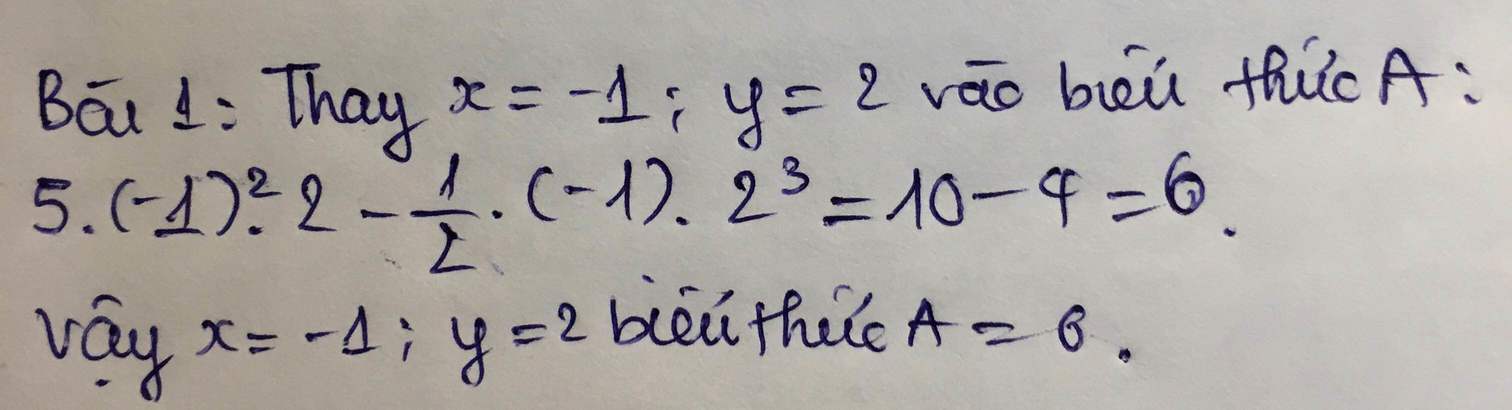 Bài 1: Thay x = -1; y = 2 vào biểu thức A:
5.(-1)².2 - 1/2 . (-1). 2³ = 10 - 4 = 6.
Vậy x = -1; y = 2 biểu thức A = 6.